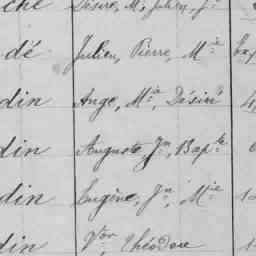 Désiré, M, Julien, J
dé Julien, Pierre, M^ie
din Ange, M^ie, Désiré
din Auguste, J^n, Bap^te
din Eugène, J^n, M^ie
din V^or, Théodore